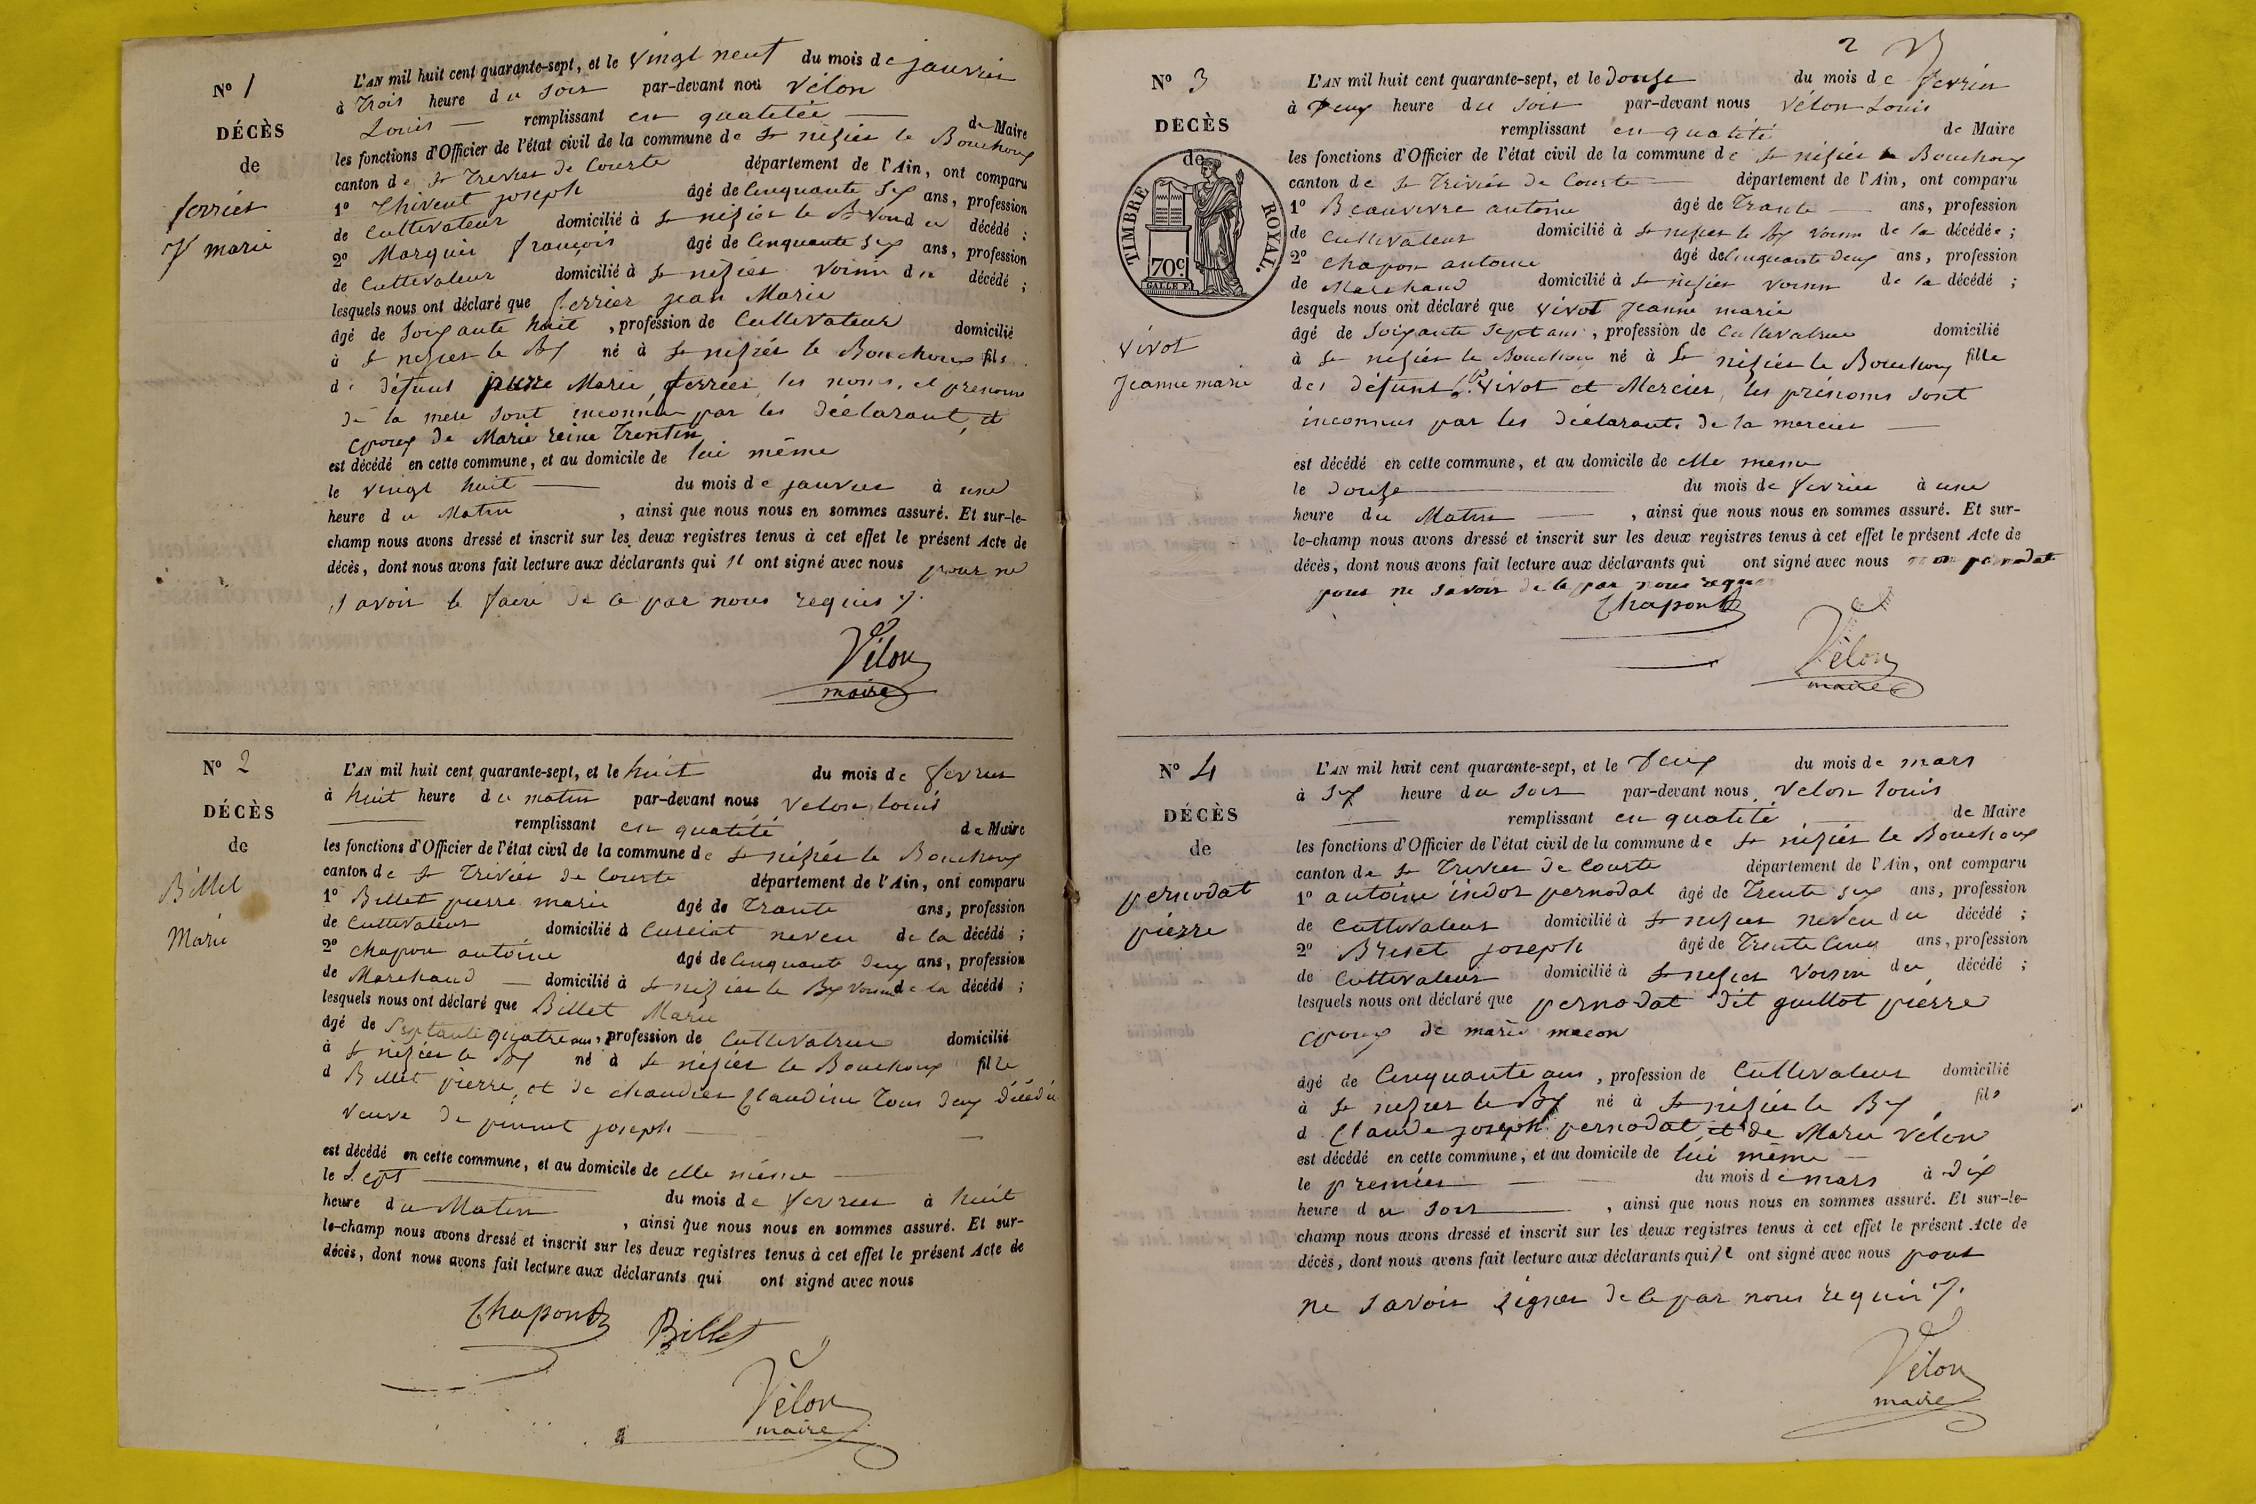 N° 1
DÉCÈS
de
ferrier
J marie
L'AN mil huit cent quarante-sept, et le vingt neuf du mois de janvier
à Trois heure du soir par-devant nou Vélon
Louis — remplissant en quatitée — de Maire
les fonctions d'Officier de l'état civil de la commune de St nisier le Bouchoux
canton de St Trivier de Courte département de l'Ain, ont comparu
1° Thivent joseph âgé de Cinquante six ans, profession
de Cultivateur domicilié à St nisier le B Voun du décédé ;
2° Marquis françois âgé de Cinquante six ans, profession
de Cultivateur domicilié à St nisier voisin du décédé ;
lesquels nous ont déclaré que ferrier jean Marie
âgé de soixante huit , profession de Cultivateur domicilié
à St nisier le Bx né à St nisier le Bouchoux fils
de défunt Marie ferrier, les noms, et prenoms
de la mere sont inconnu par les déclarant, et
epoux de Marie reine Trontin
est décédé en cette commune, et au domicile de lui même
le vingt huit — du mois de janvier à une
heure du Matin , ainsi que nous nous en sommes assuré. Et sur-le-
champ nous avons dressé et inscrit sur les deux registres tenus à cet effet le présent Acte de
décès, dont nous avons fait lecture aux déclarants qui n ont signé avec nous pour ne
savoir le faire de ce par nous requis
Vélon
maire
N° 2
DÉCÈS
de
Billet
Marie
L'AN mil huit cent quarante-sept, et le huit du mois de fevrier
à huit heure du matin par-devant nous velon louis
remplissant en quatité de Maire
les fonctions d'Officier de l'état civil de la commune de St nisier le Bouchoux
canton de St Trivier de Courte département de l'Ain, ont comparu
1° Billet pierre marie âgé de Trante ans, profession
de Cultivateur domicilié à Curciat neveu de la décédé ;
2° Chapon antoine âgé de Cinquante deux ans, profession
de Marchand — domicilié à St nisier le Bx Voisin de la décédé ;
lesquels nous ont déclaré que Billet Marie
âgé de Septante quatre ans, profession de Cultivatrice domicilié
à St nisier le Bx né à St nisier le Bouchoux fille
d Billet pierre, et de chaudier Claudine Tous deux décédé
veuve de joseph —
est décédé en cette commune, et au domicile de elle même —
le Sept — du mois de fevrier à huit
heure du Matin , ainsi que nous nous en sommes assuré. Et sur-
le-champ nous avons dressé et inscrit sur les deux registres tenus à cet effet le présent Acte de
décès, dont nous avons fait lecture aux déclarants qui ont signé avec nous
Chapon Billet
Vélon
maire
2
N° 3
DECÈS
de
TIMBRE ROYAL.
70c
vivot
jeanne marie
L'AN mil huit cent quarante-sept, et le douze du mois de fevrier
à Deux heure du soir par-devant nous Vélon Louis
remplissant en quatité de Maire
les fonctions d'Officier de l'état civil de la commune de St nisier le Bouchoux
canton de St Trivier de Courte — département de l'Ain, ont comparu
1° Beauvivre antoine âgé de Trante — ans, profession
de Cultivateur domicilié à St nisier le Bx voisin de la décédée ;
2° Chapon antoine âgé de Cinquante deux ans, profession
de Marchand domicilié à St nisier voisin de la décédé ;
lesquels nous ont déclaré que vivot jeanne marie
âgé de soixante sept ans , profession de Cultivatrice domicilié
à St nisier le Bouchou né à St nisier le Bouchoux fille
des défunt vivot et Mercier, les prénoms sont
inconnus par les déclarants de la mercier —
est décédé en cette commune, et au domicile de elle meme
le douze — du mois de fevrier à une
heure du Matin — , ainsi que nous nous en sommes assuré. Et sur-
le-champ nous avons dressé et inscrit sur les deux registres tenus à cet effet le présent Acte de
décès, dont nous avons fait lecture aux déclarants qui ont signé avec nous non
pour ne savoir de ce par nous reque
Chapon
Vélon
maire
N° 4
DÉCÈS
de
pernodat
piérre
L'AN mil huit cent quarante-sept, et le Deux du mois de mars
à six heure du soir par-devant nous Velon louis
— remplissant en quatité — de Maire
les fonctions d'Officier de l'état civil de la commune de St nisier le Bouchoux
canton de St Trivier de Courte département de l'Ain, ont comparu
1° antoine pernodat âgé de Trente six ans, profession
de Cultivateur domicilié à St nisier neveu du décédé ;
2° Briset joseph âgé de Trente Cinq ans, profession
de Cultivateur domicilié à St nisier Voisin du décédé ;
lesquels nous ont déclaré que pernodat dit guillot piérre
epoux de marie macon
âgé de Cinquante ans , profession de Cultivateur domicilié
à St nisier le Bx né à St nisier le Bx , fils
d Claude joseph pernodat et de Marie velon
est décédé en cette commune, et au domicile de lui même —
le premier — du mois de mars à dix
heure du soir — , ainsi que nous nous en sommes assuré. Et sur-le-
champ nous avons dressé et inscrit sur les deux registres tenus à cet effet le présent Acte de
décès, dont nous avons fait lecture aux déclarants qui ont signé avec nous pour
ne savoir signer de ce par nous requis
Vélon
maire